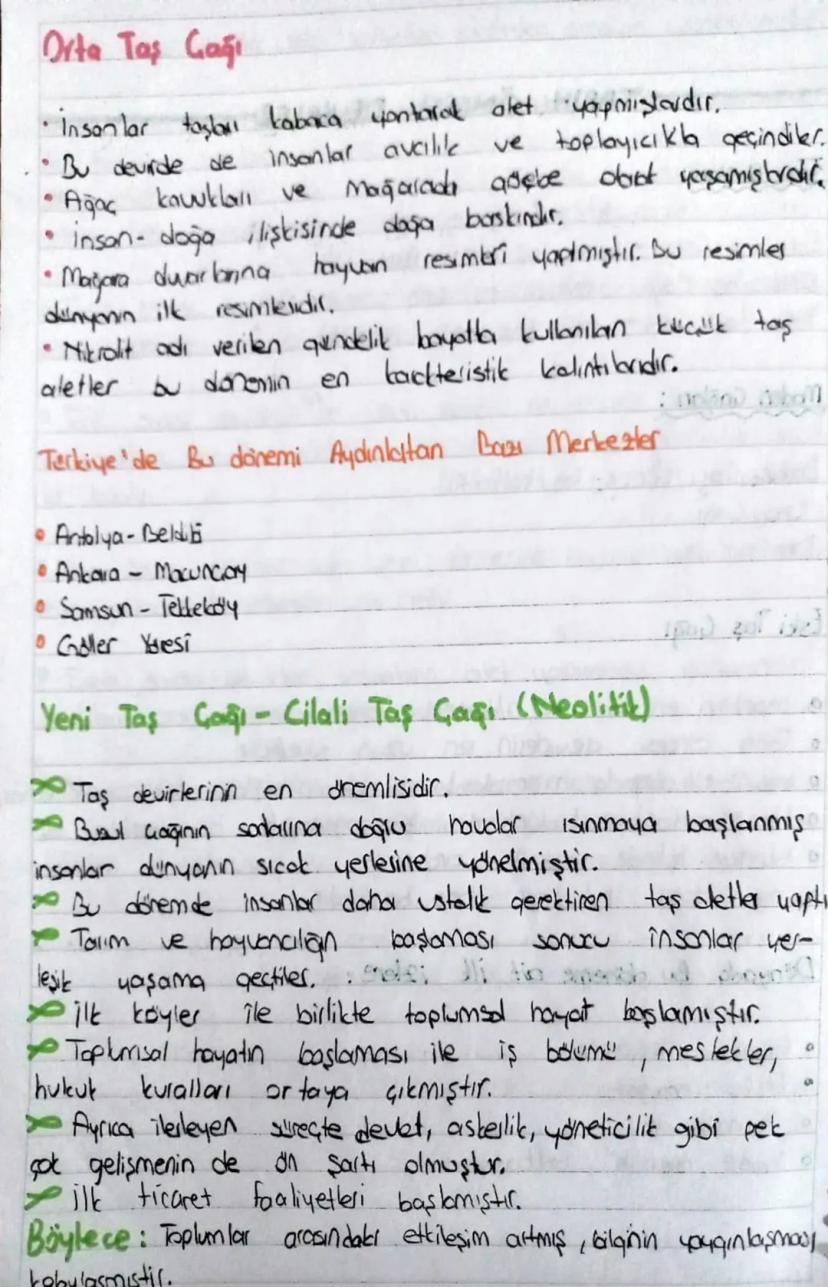 Orta Taş Çağı
• İnsanlar taşları kabaca yontarak alet yapmışlardır.
• Bu devirde de insanlar avcılık ve toplayıcıkla geçindiler.
• Ağaç kavukları ve Mağarada göçebe olarak yaşamışlardır.
• İnsan-doğa ilişkisinde doğa baskındır.
• Mağara duvarlarına hayvan resimleri yapılmıştır. Bu resimler
dünyanın ilk resimleridir.
• Mikrolit adı verilen gündelik hayatta kullanılan küçük taş
aletler bu dönemin en karakteristik kalıntılarıdır.
Türkiye'de Bu dönemi Aydınlatan Bazı Merkezler
• Antalya-Beldibi
• Ankara - Macunçay
• Samsun - Tekkeköy
• Göller Yöresi
Yeni Taş Çağı - Cilali Taş Çağı (Neolitik)
Taş devirlerinin en önemlisidir.
Buzul çağının sonlarına doğru havalar ısınmaya başlanmış
insanlar dünyanın sıcak yerlerine yönelmiştir.
Bu dönemde insanlar daha ustalık gerektiren taş aletler yaptı
Tarım ve hayvancılığın başlaması sonucu insanlar yer-
leşik yaşama geçtiler.
İlk köyler ile birlikte toplumsal hayat başlamıştır.
Toplumsal hayatın başlaması ile iş bölümü, meslekler,
hukuk kuralları ortaya çıkmıştır.
Ayrıca ilerleyen süreçte devlet, askerlik, yöneticilik gibi pek
çok gelişmenin de ön şartı olmuştur.
İlk ticaret faaliyetleri başlamıştır.
Böylece: Toplumlar arasındaki etkileşim artmış, bilginin yaygınlaşması
kolaylaşmıştır.